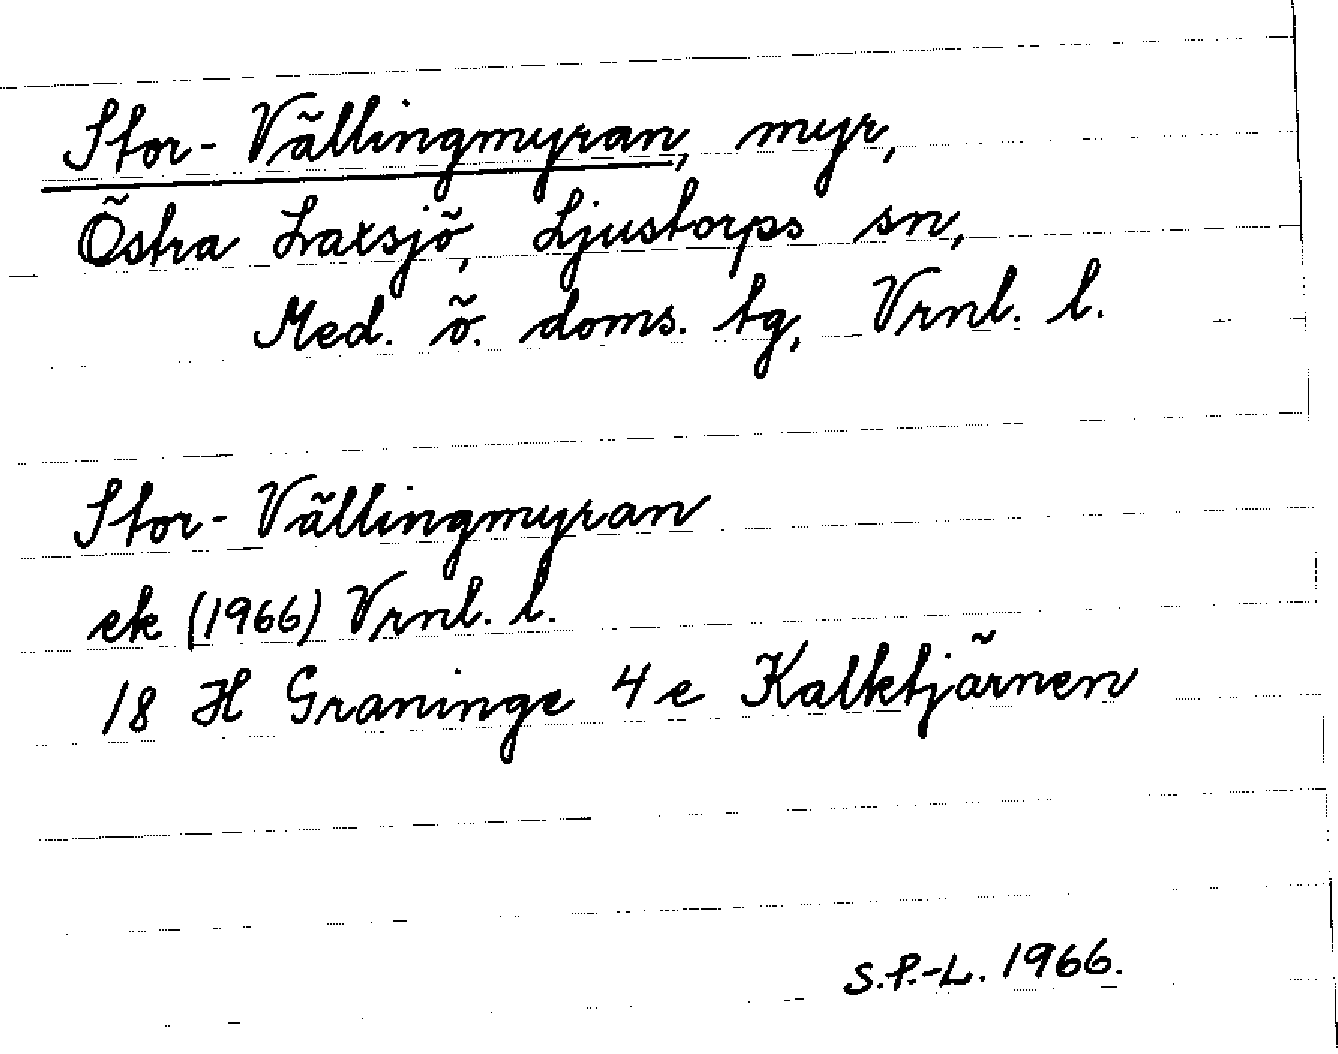 Stor-Vällingmyran, myr,
Östra Laxsjö, Ljustorps sn,
Med. ö. doms. tg, Vrnl. l.
Stor-Vällingmyran
ek (1966) Vrnl. l.
18 H Graninge 4 e Kalktjärnen
S.P.-L. 1966.